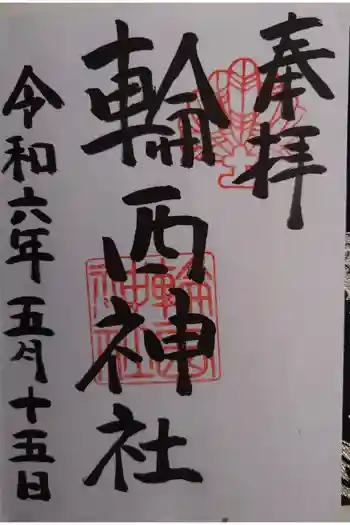 奉拝
輪西神社
令和六年五月十五日
輪西神社